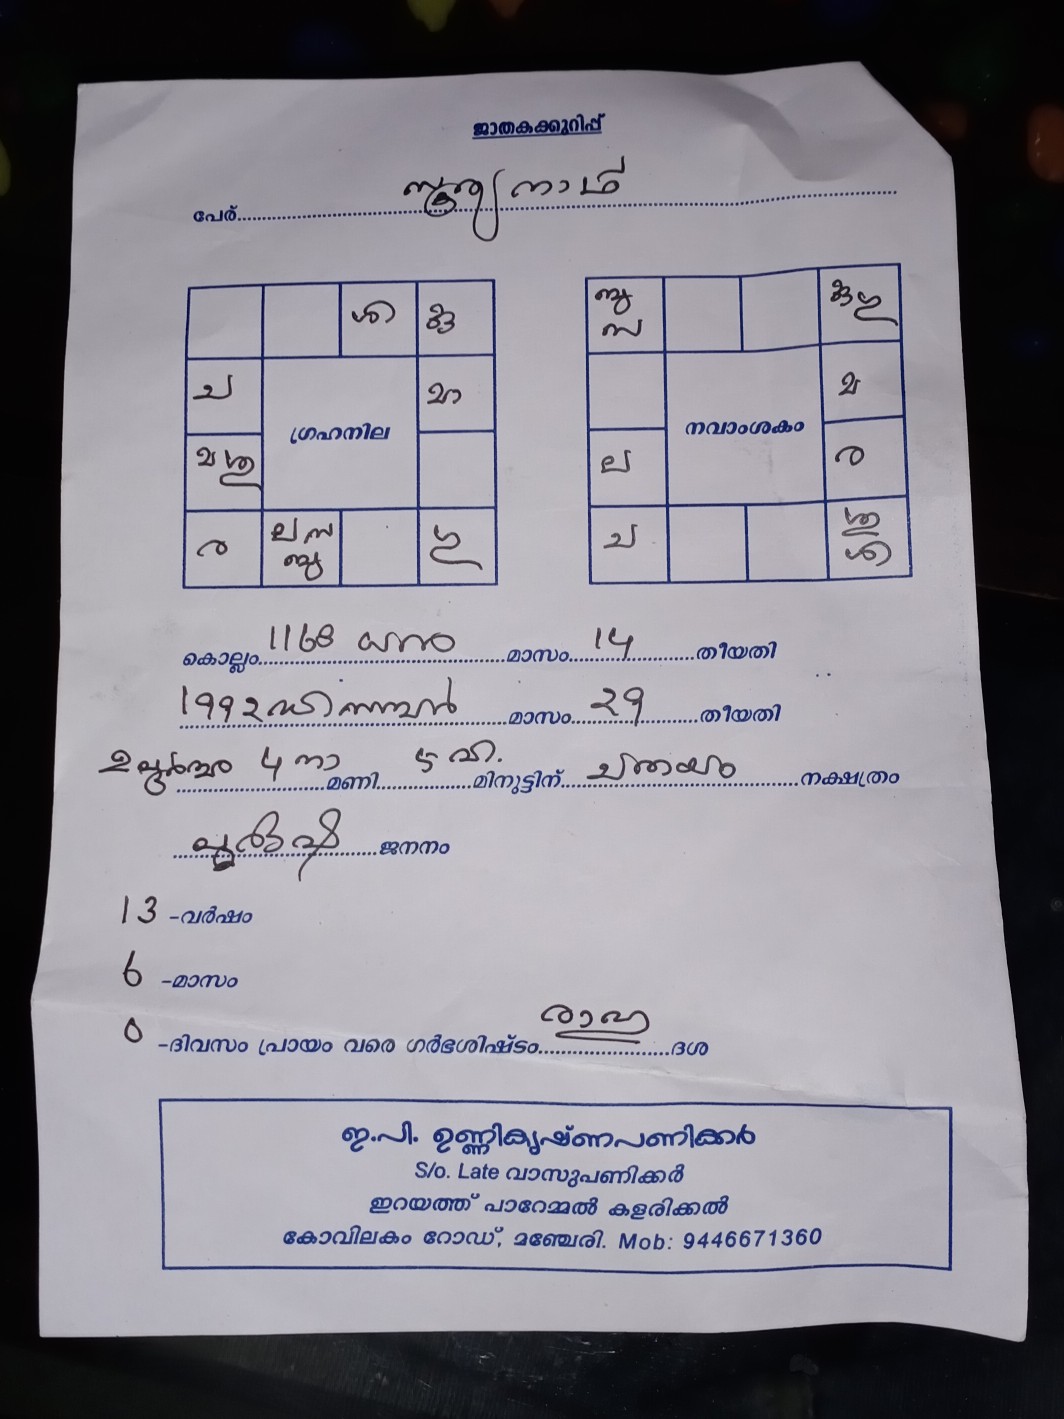 ജാതകക്കുറിപ്പ്
പേര്. സൂര്യനാഥ്
ശി കു
ച മാ
ഗ്രഹനില
മ ശു
ര ല സ ഗു
ബു
ബു കു ഗു
സ
മ
നവാംശകം
ല ര
ച ശു
ശി
കൊല്ലം 1168 ധനു മാസം 14 തീയതി
1992 ഡിസമ്പർ മാസം 29 തീയതി
4 നാ മണി 5 വി. മിനുട്ടിന് ചതയം നക്ഷത്രം
പുരുഷ ജനനം
13 -വർഷം
6 -മാസം
0 -ദിവസം പ്രായം വരെ ഗർഭശിഷ്ടം രാഹു ദശ
ഇ.പി. ഉണ്ണികൃഷ്ണപണിക്കർ
S/o. Late വാസുപണിക്കർ
ഇറയത്ത് പാറേമ്മൽ കളരിക്കൽ
കോവിലകം റോഡ്, മഞ്ചേരി. Mob: 9446671360